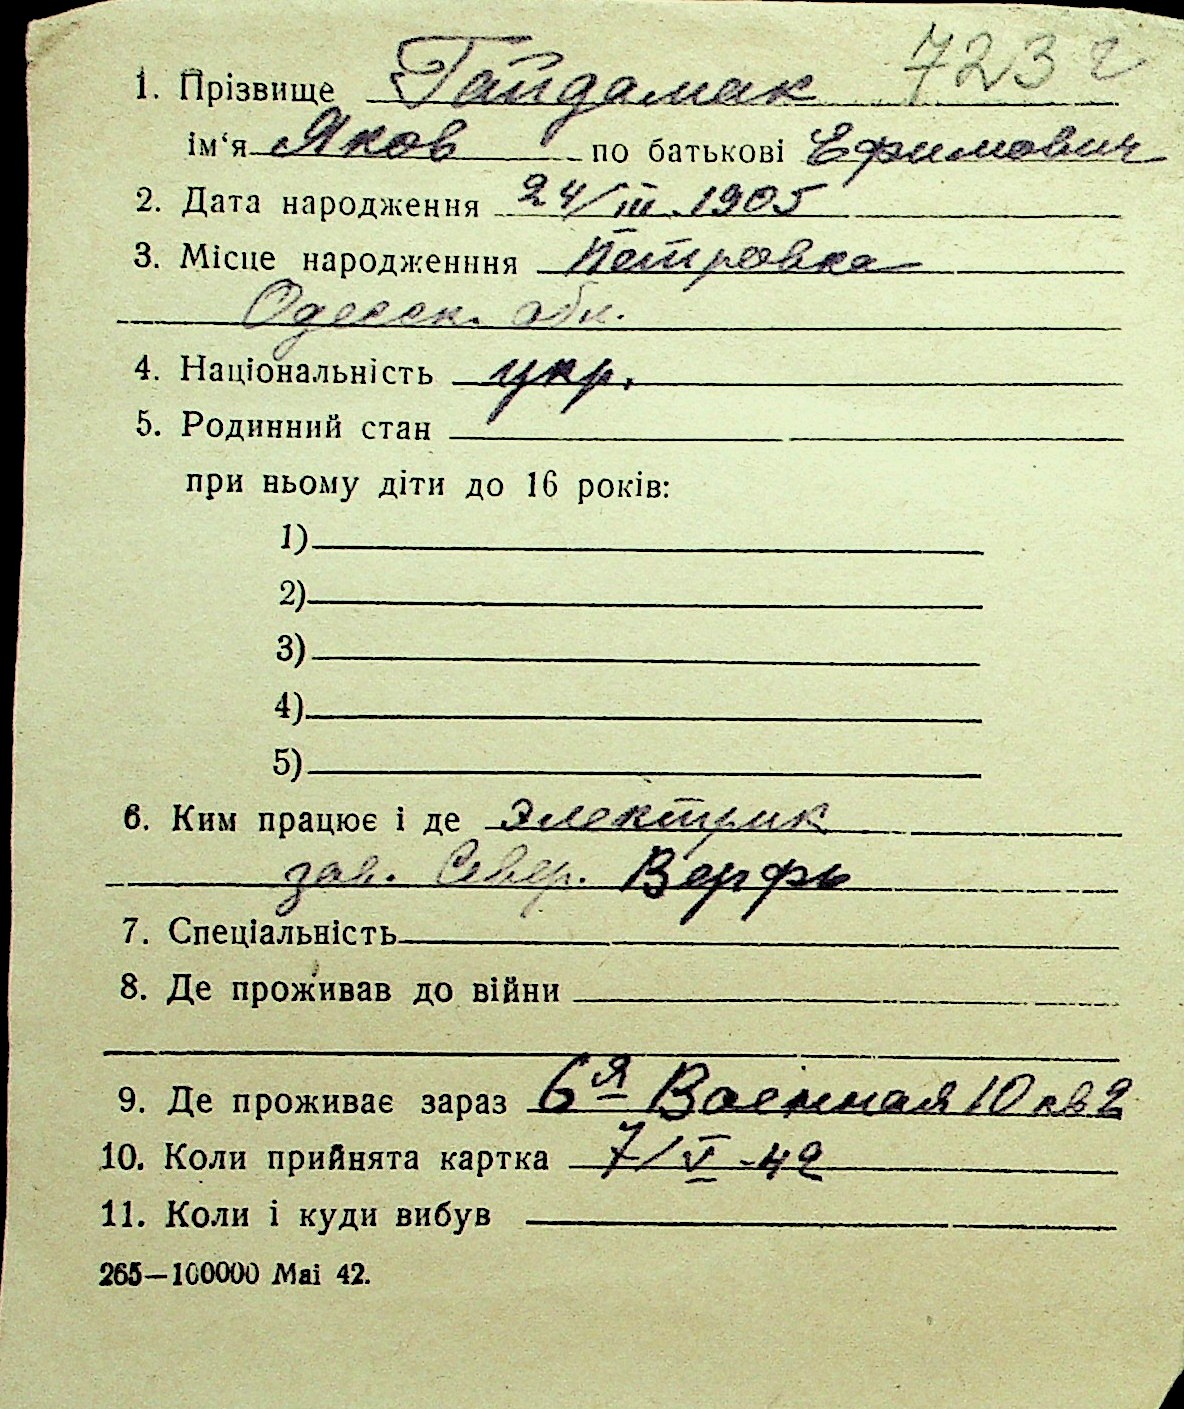 723 г
1. Прізвище Гайдамак
ім‘я Яков по батькові Ефимович
2. Дата народження 24/III.1905
3. Місце народженння Петровка
Одесск. обл.
4. Національність укр.
5. Родинний стан
при ньому діти до 16 років:
1)
2)
3)
4)
5)
6. Ким працює і де Электрик
зав. Север. Верфь
7. Спеціальність
8. Де проживав до війни
9. Де проживає зараз 6я Военная 10 кв 2
10. Коли прийнята картка 7/V-42
11. Коли і куди вибув
265—100000 Mai 42.